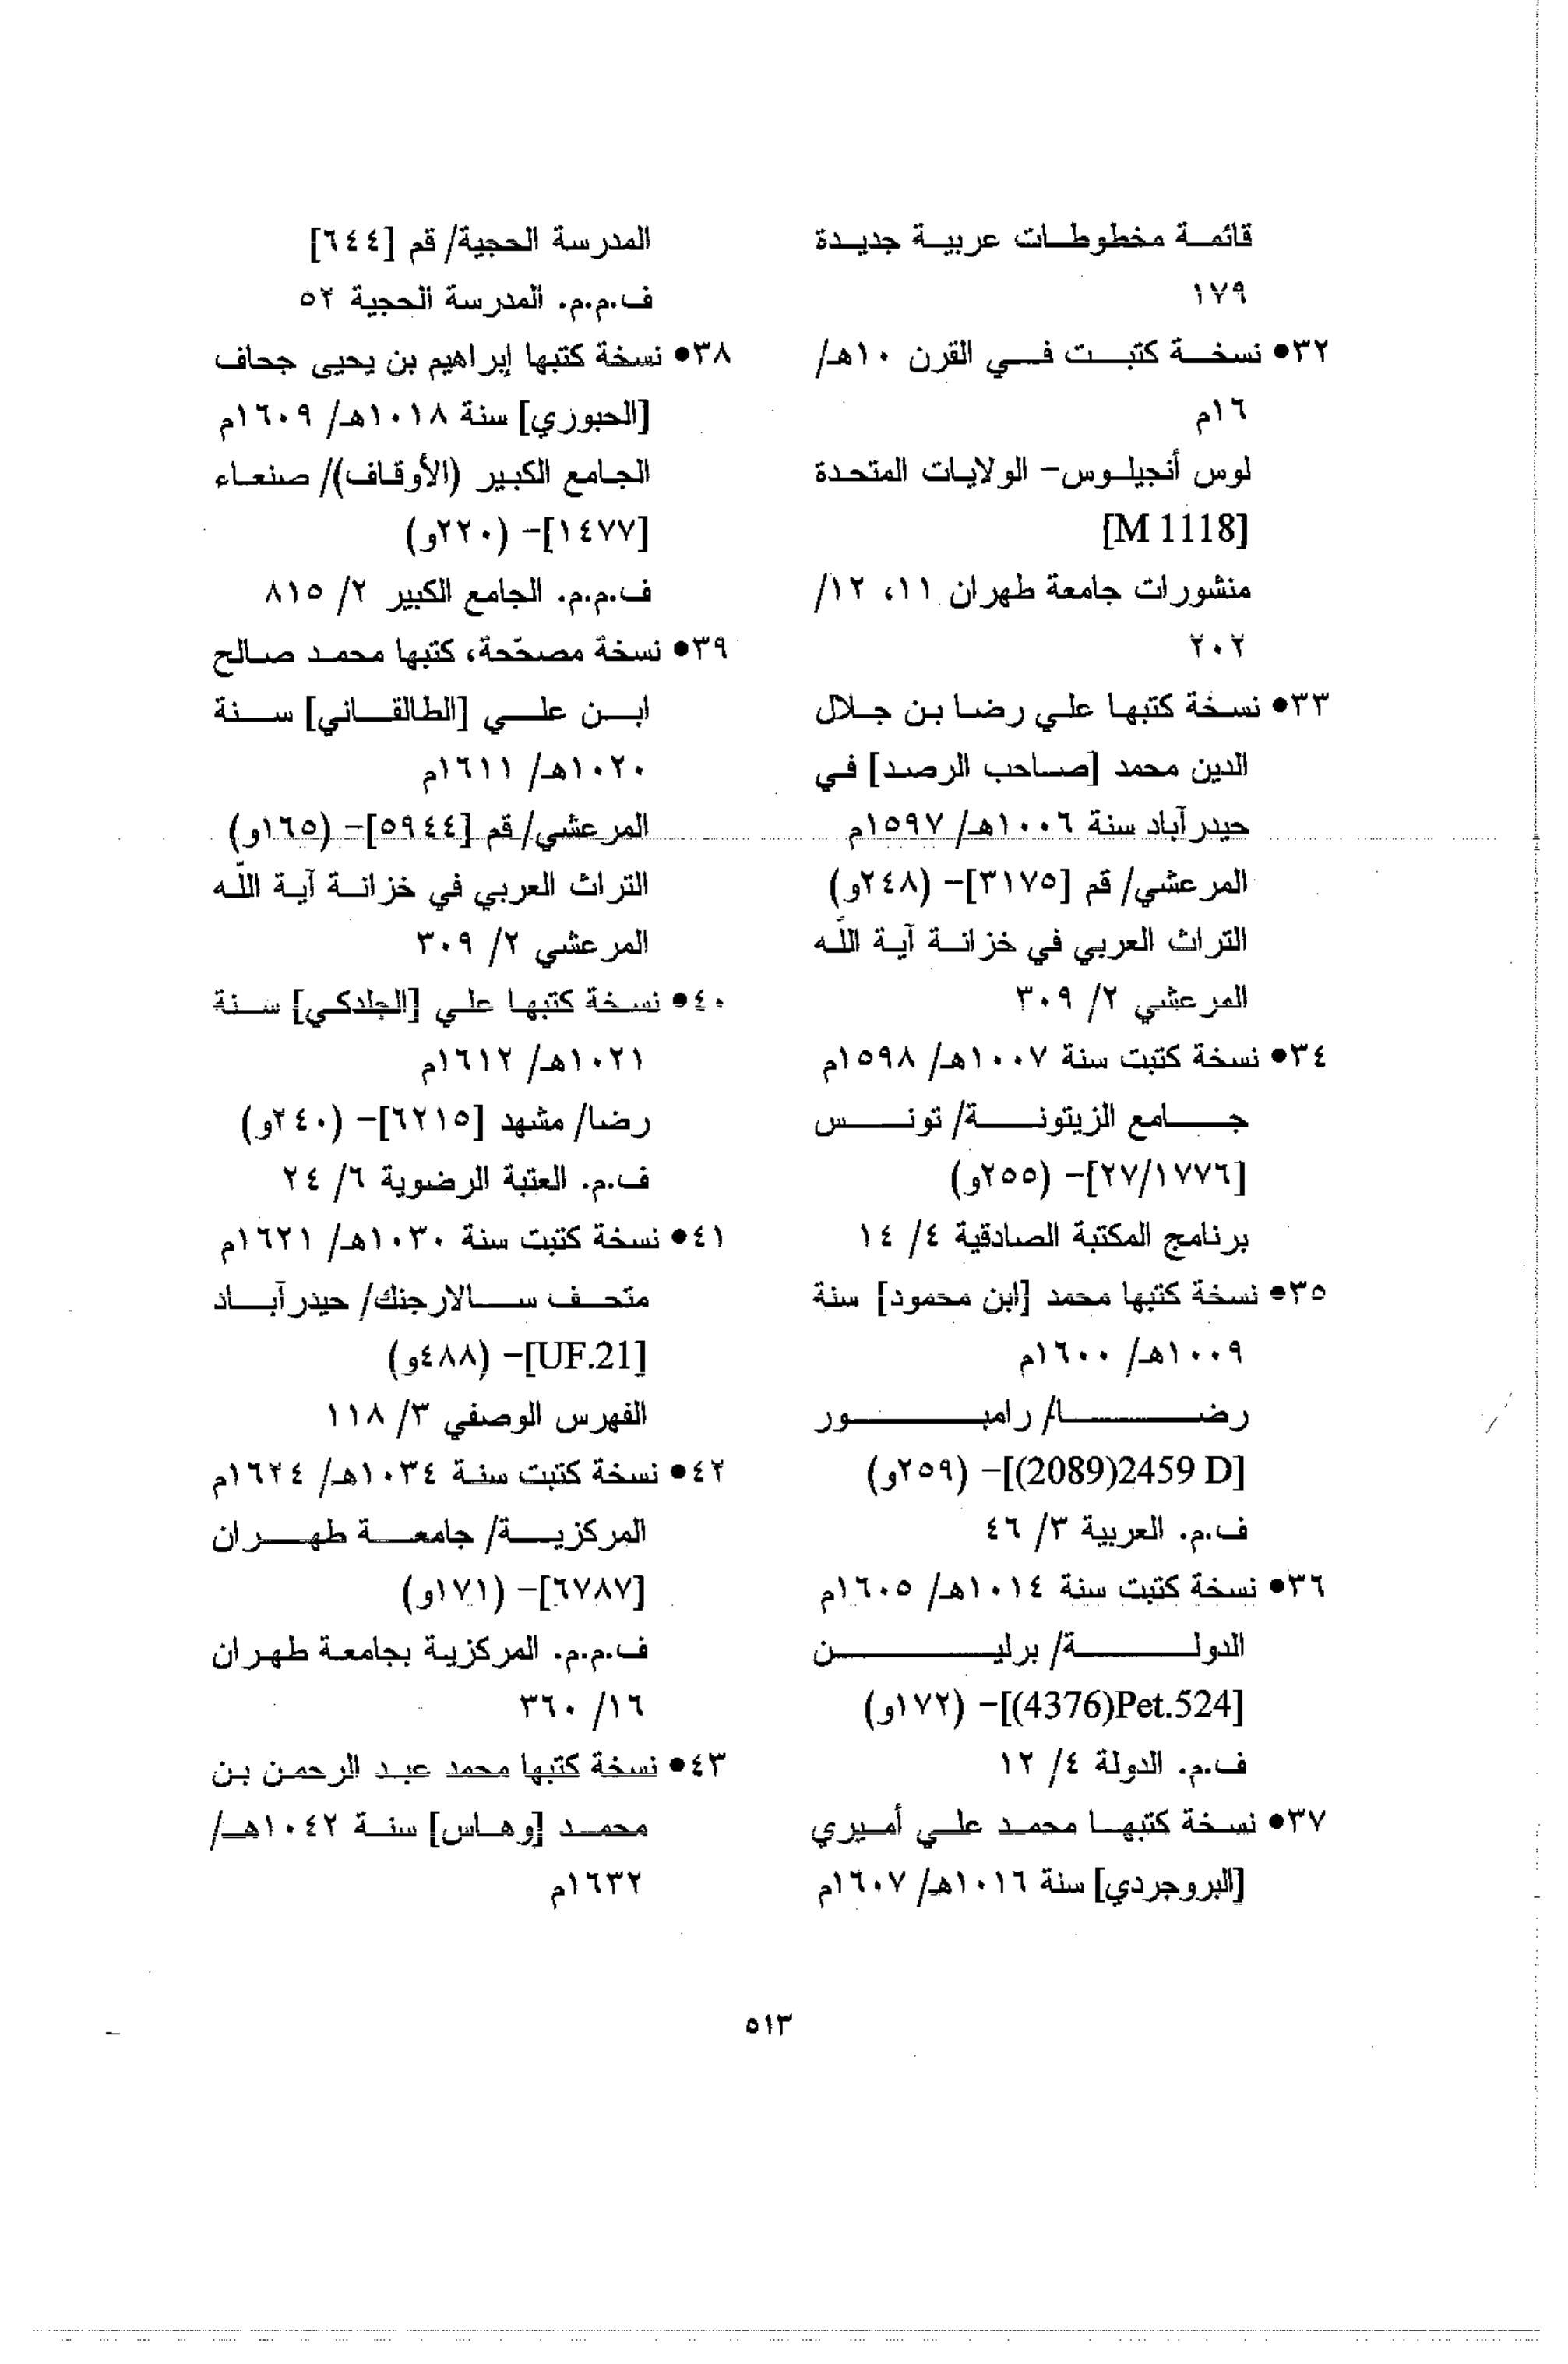 قائمة مخطوطات عربية جديدة
١٧٩
٣٢● نسخة كتبت في القرن ١٠هـ/
١٦م
لوس أنجيلوس- الولايات المتحدة
[M 1118]
منشورات جامعة طهران ١١، ١٢/
٢٠٢
٣٣● نسخة كتبها علي رضا بن جلال
الدين محمد [صاحب الرصد] في
حيدرآباد سنة ١٠٠٦هـ/ ١٥٩٧م
المرعشي/ قم [٣١٧٥]- (٢٤٨و)
التراث العربي في خزانة آية اللّه
المرعشي ٢/ ٣٠٩
٣٤● نسخة كتبت سنة ١٠٠٧هـ/ ١٥٩٨م
جامع الزيتونة/ تونس
[٢٧/١٧٧٦]- (٢٥٥و)
برنامج المكتبة الصادقية ٤/ ١٤
٣٥● نسخة كتبها محمد [ابن محمود] سنة
١٠٠٩هـ/ ١٦٠٠م
رضا/ رامبور
[2459 D(2089)]- (٢٥٩و)
ف.م. العربية ٣/ ٤٦
٣٦● نسخة كتبت سنة ١٠١٤هـ/ ١٦٠٥م
الدولة/ برلين
[Pet.524(4376)]- (١٧٢و)
ف.م. الدولة ٤/ ١٢
٣٧● نسخة كتبها محمد علي أميري
[البروجردي] سنة ١٠١٦هـ/ ١٦٠٧م
المدرسة الحجية/ قم [٦٤٤]
ف.م.م. المدرسة الحجية ٥٢
٣٨● نسخة كتبها إبراهيم بن يحيى جحاف
[الحبوري] سنة ١٠١٨هـ/ ١٦٠٩م
الجامع الكبير (الأوقاف)/ صنعاء
[١٤٧٧]- (٢٢٠و)
ف.م.م. الجامع الكبير ٢/ ٨١٥
٣٩● نسخة مصحّحة، كتبها محمد صالح
ابن علي [الطالقاني] سنة
١٠٢٠هـ/ ١٦١١م
المرعشي/ قم [٥٩٤٤]- (١٦٥و)
التراث العربي في خزانة آية اللّه
المرعشي ٢/ ٣٠٩
٤٠● نسخة كتبها علي [الجلدكي] سنة
١٠٢١هـ/ ١٦١٢م
رضا/ مشهد [٦٢١٥]- (٢٤٠و)
ف.م. العتبة الرضوية ٦/ ٢٤
٤١● نسخة كتبت سنة ١٠٣٠هـ/ ١٦٢١م
متحف سالارجنك/ حيدرآباد
[UF.21]- (٤٨٨و)
الفهرس الوصفي ٣/ ١١٨
٤٢● نسخة كتبت سنة ١٠٣٤هـ/ ١٦٢٤م
المركزية/ جامعة طهران
[٦٧٨٧]- (١٧١و)
ف.م.م. المركزية بجامعة طهران
١٦/ ٣٦٠
٤٣● نسخة كتبها محمد عبد الرحمن بن
محمد [وهاس] سنة ١٠٤٢هـ/
١٦٣٢م
٥١٣